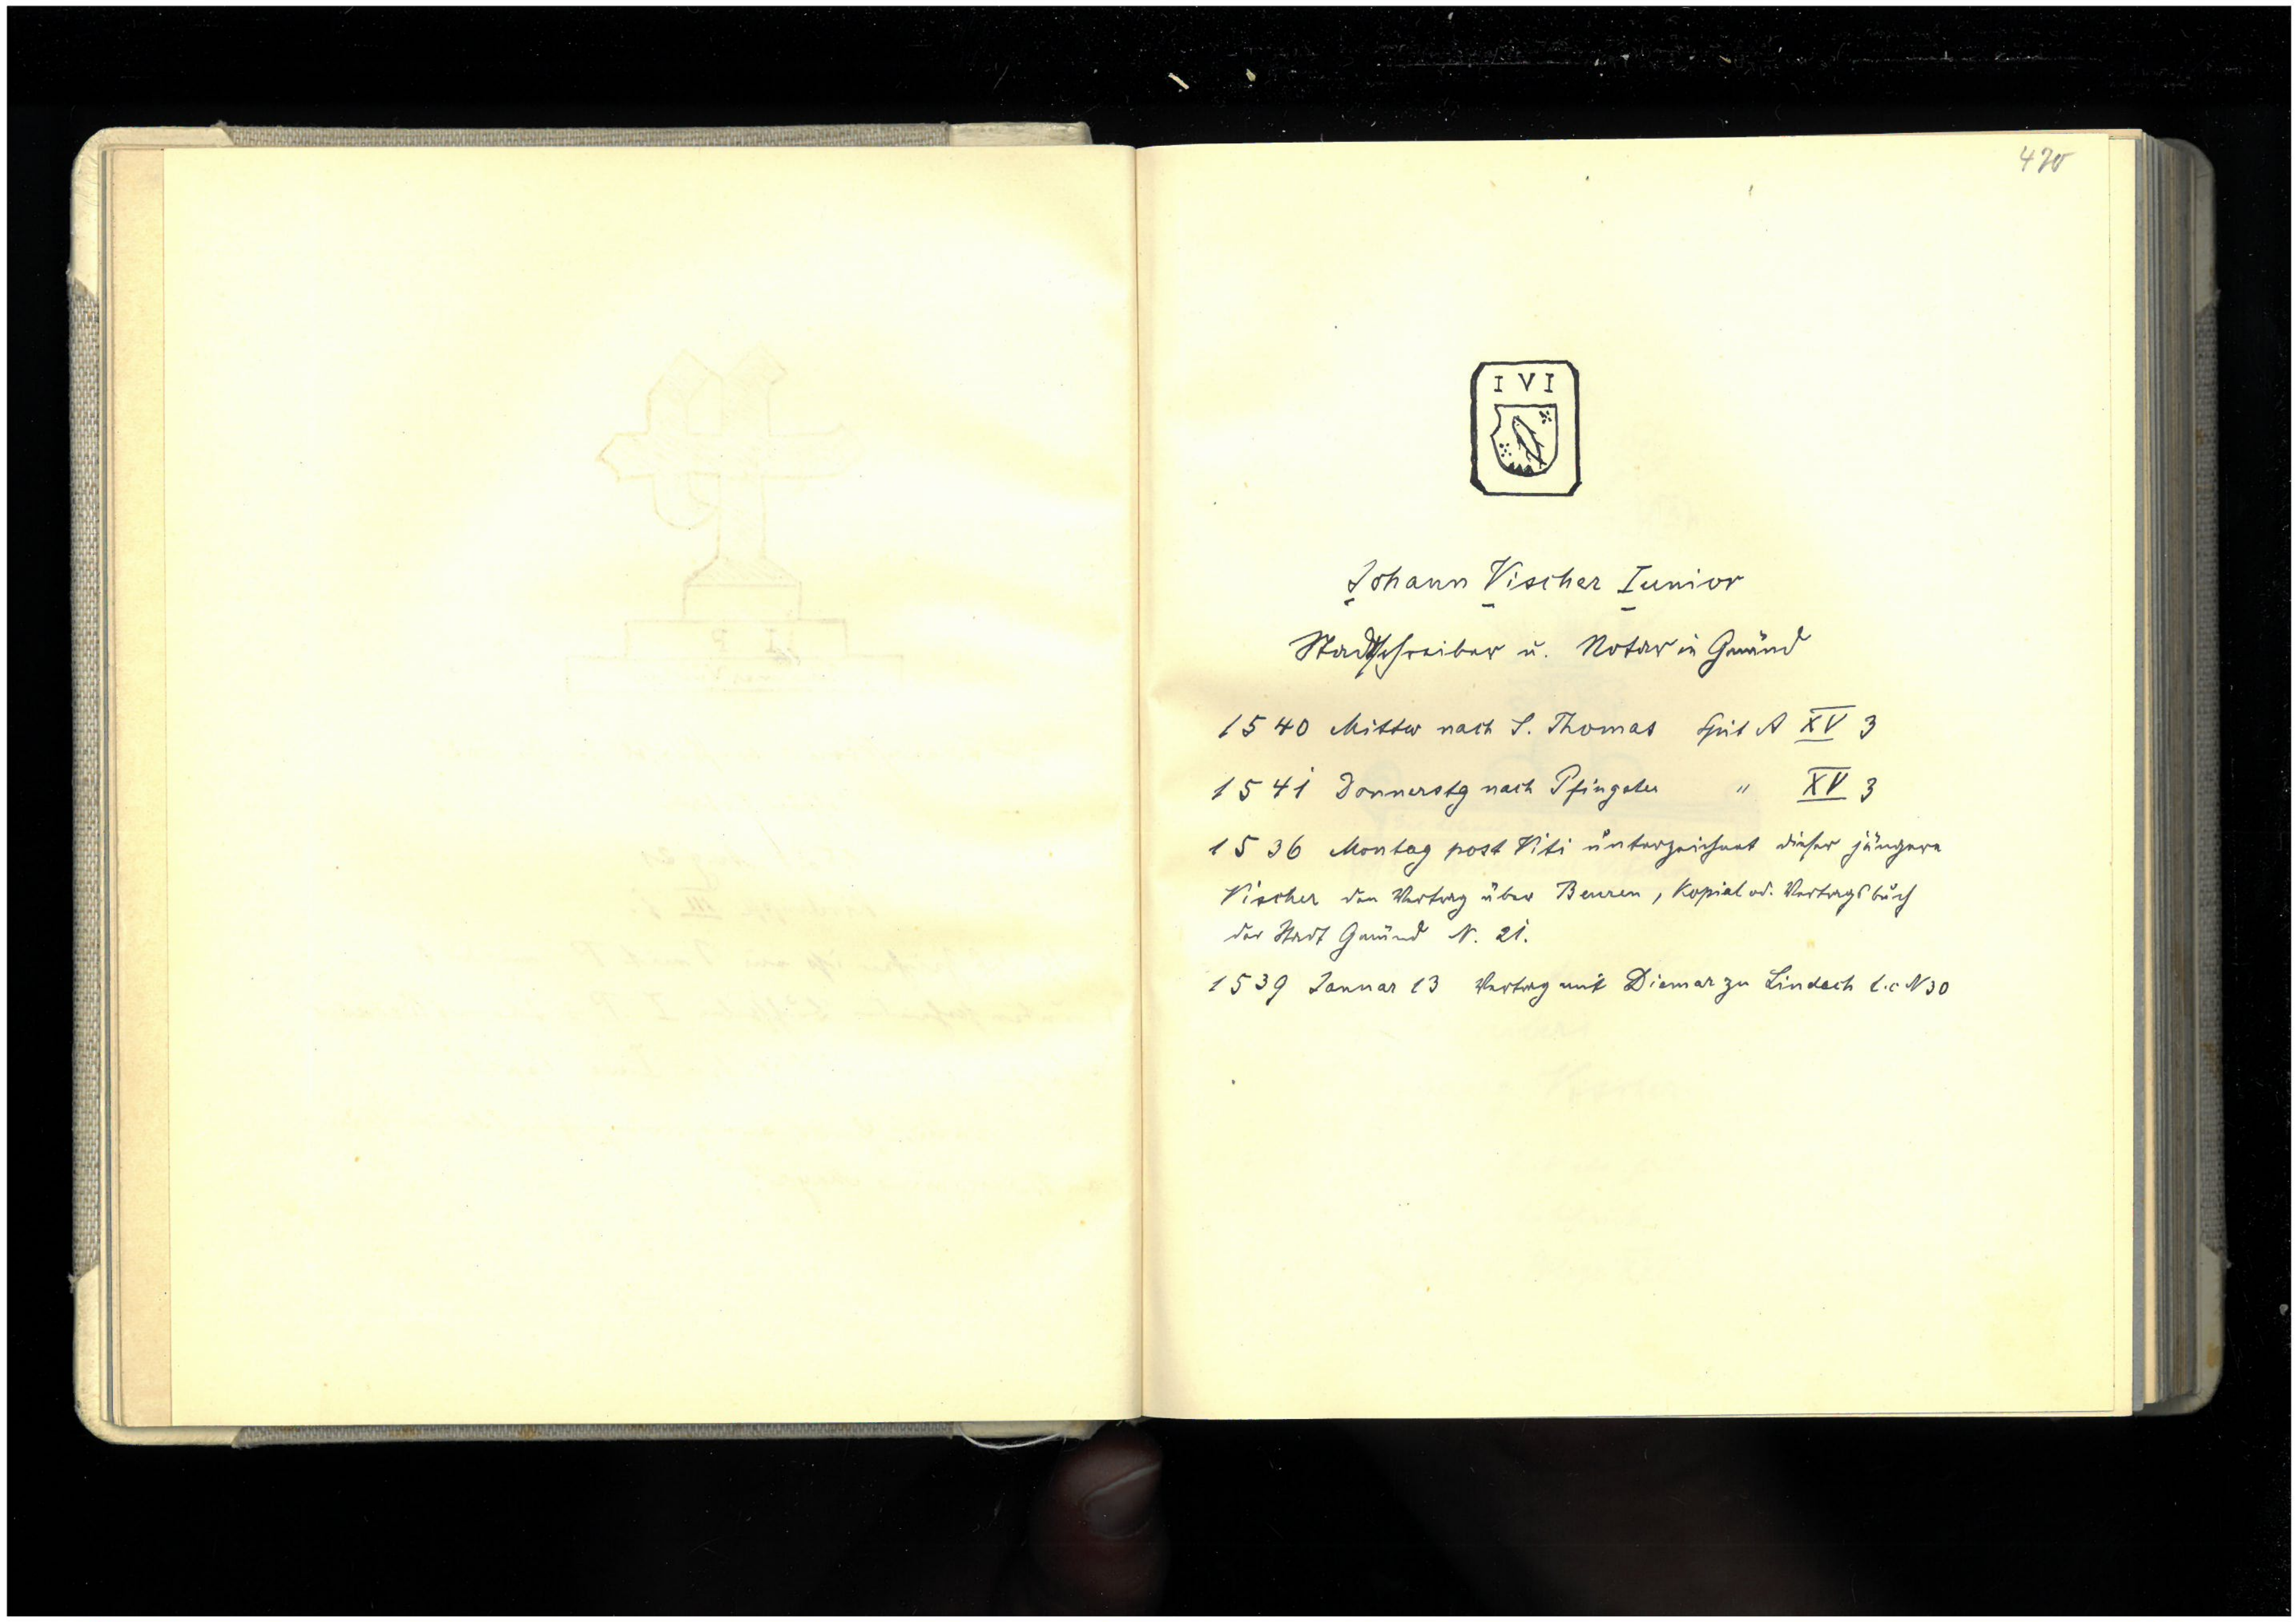 470
I V I
Johann Vischer Iunior
Stadtschreiber u. Notar in Gmünd
1540 Mittw nach S. Thomas Spit A XV 3
1541 Donnerstg nach Pfingsten " XV 3
1536 Montag post Viti unterzeichnet dieser jüngere
Vischer den Vertrag über Beuren, Kopial od. Vertragsbuch
der Stadt Gmünd N. 21.
1539 Januar 13 Vertrag mit Diemar zu Lindach l.c N 30